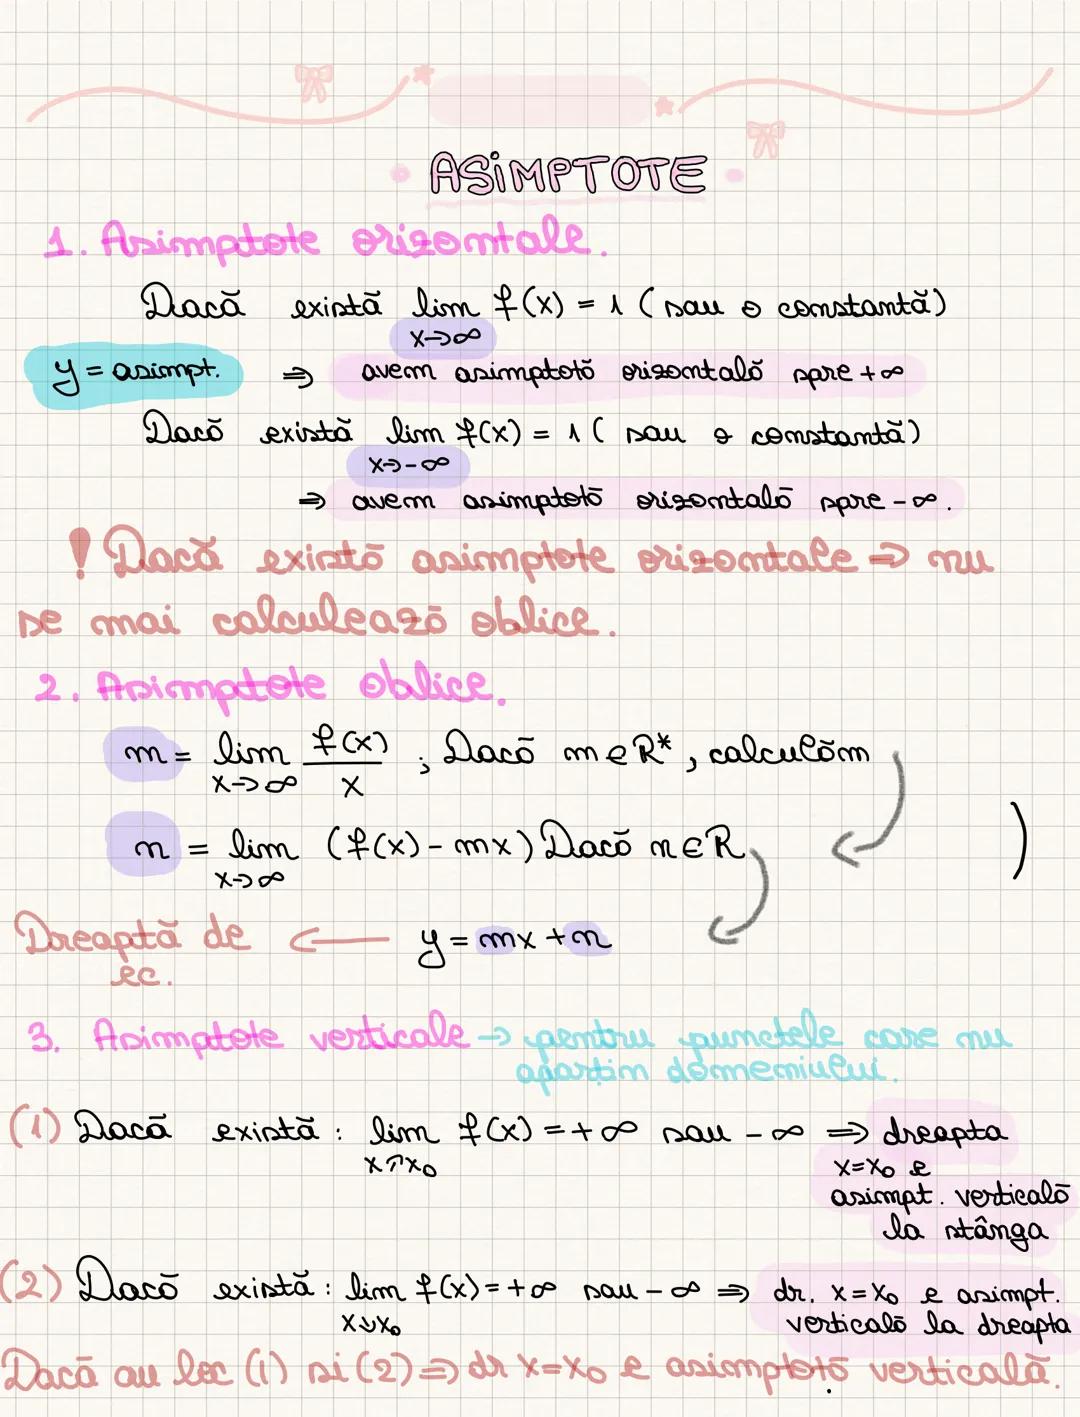 ASIMPTOTE
1. Asimptote orizontale.
Dacă există lim f(x) = 1 (sau o constantă)
x→∞
y = asimpt. ⇒ avem asimptotă orizontală spre +∞
Dacă există lim f(x) = 1 (sau o constantă)
x→-∞
⇒ avem asimptotă orizontală spre -∞.
! Dacă există asimptote orizontale ⇒ nu
se mai calculează oblice.
2. Asimptote oblice.
m = lim f(x)/x ; Dacă m∈R*, calculăm
x→∞
n = lim (f(x) - mx) Dacă n∈R )
x→∞
Dreaptă de ← y = mx + n
ec.
3. Asimptote verticale → pentru punctele care nu
aparțin domeniului.
(1) Dacă există : lim f(x) = +∞ sau -∞ ⇒ dreapta
x↗x₀ x=x₀ e
asimpt. verticală
la stânga
(2) Dacă există : lim f(x) = +∞ sau -∞ ⇒ dr. x=x₀ e asimpt.
x↘x₀ verticală la dreapta
Dacă au loc (1) si (2) ⇒ dr x=x₀ e asimptotă verticală.